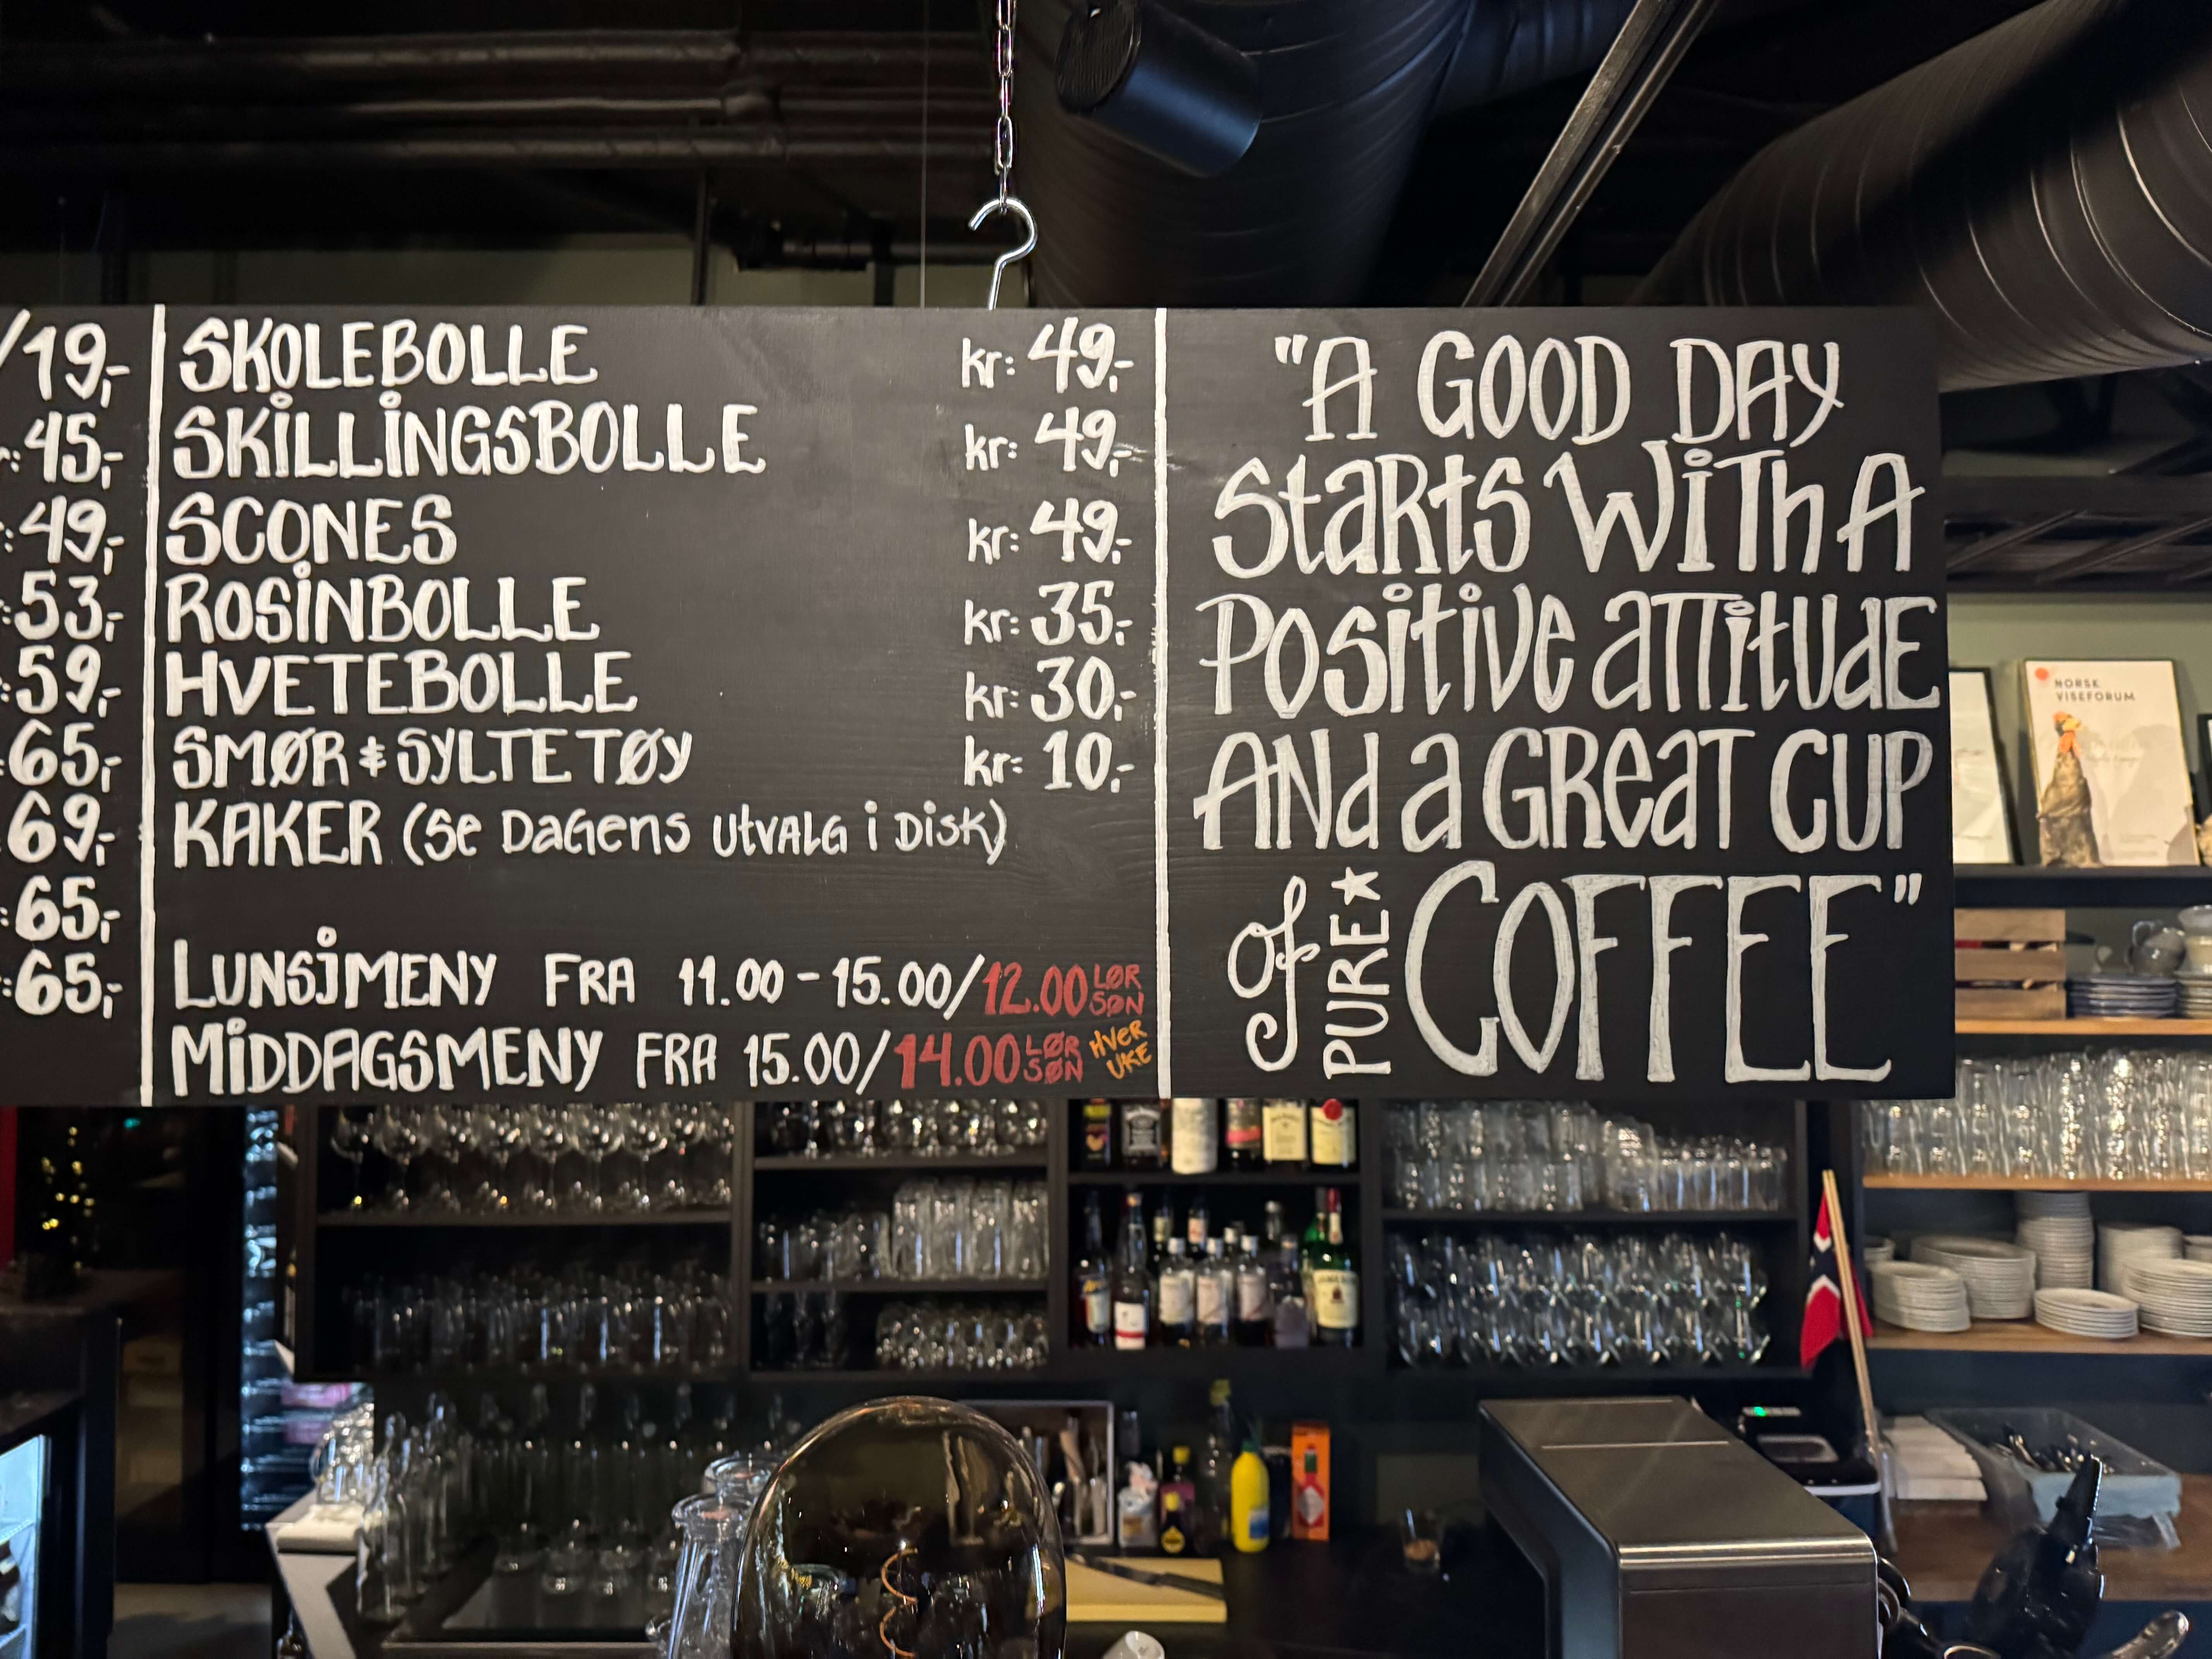 /19,-
45,-
49,-
53,-
59,-
65,-
69,-
65,-
65,-
SKOLEBOLLE kr: 49,-
SKILLINGSBOLLE kr: 49,-
SCONES kr: 49,-
ROSINBOLLE kr: 35,-
HVETEBOLLE kr: 30,-
SMØR & SYLTETØY kr: 10,-
KAKER (Se DAGens UtVALG i DiSK)
LUNSJMENY FRA 11.00-15.00/12.00 LØR SØN
MIDDAGSMENY FRA 15.00/14.00 LØR SØN HVER UKE
"A GOOD DAY
StaRtS WiTh A
POSitiVe aTTitUdE
ANd a GReaT CUP
Of PURE COFFEE"
NORSK
VISEFORUM